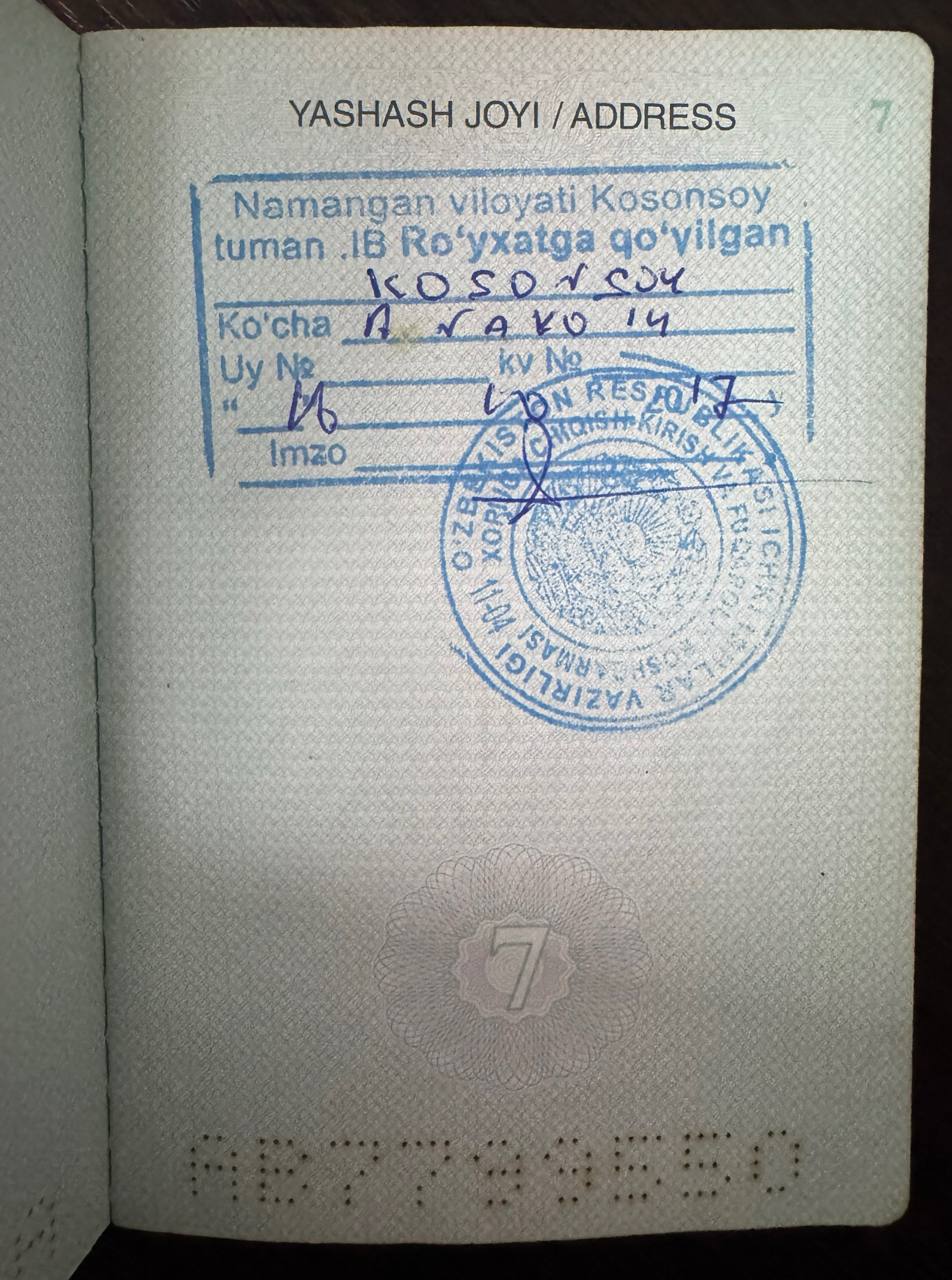 YASHASH JOYI / ADDRESS
7
Namangan viloyati Kosonsoy
tuman .IB Ro‘yxatga qo‘yilgan
KOSONSOY
Ko'cha
Uy № kv №
“ 16 10 17
Imzo
O‘ZBEKISTON RESPUBLIKASI ICHKI ISHLAR VAZIRLIGI
XORIJGA CHIQISH-KIRISH VA FUQAROLIK BOSHQARMASI
7
AB7799550